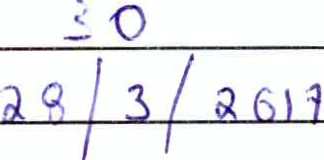 30
28/3/2017